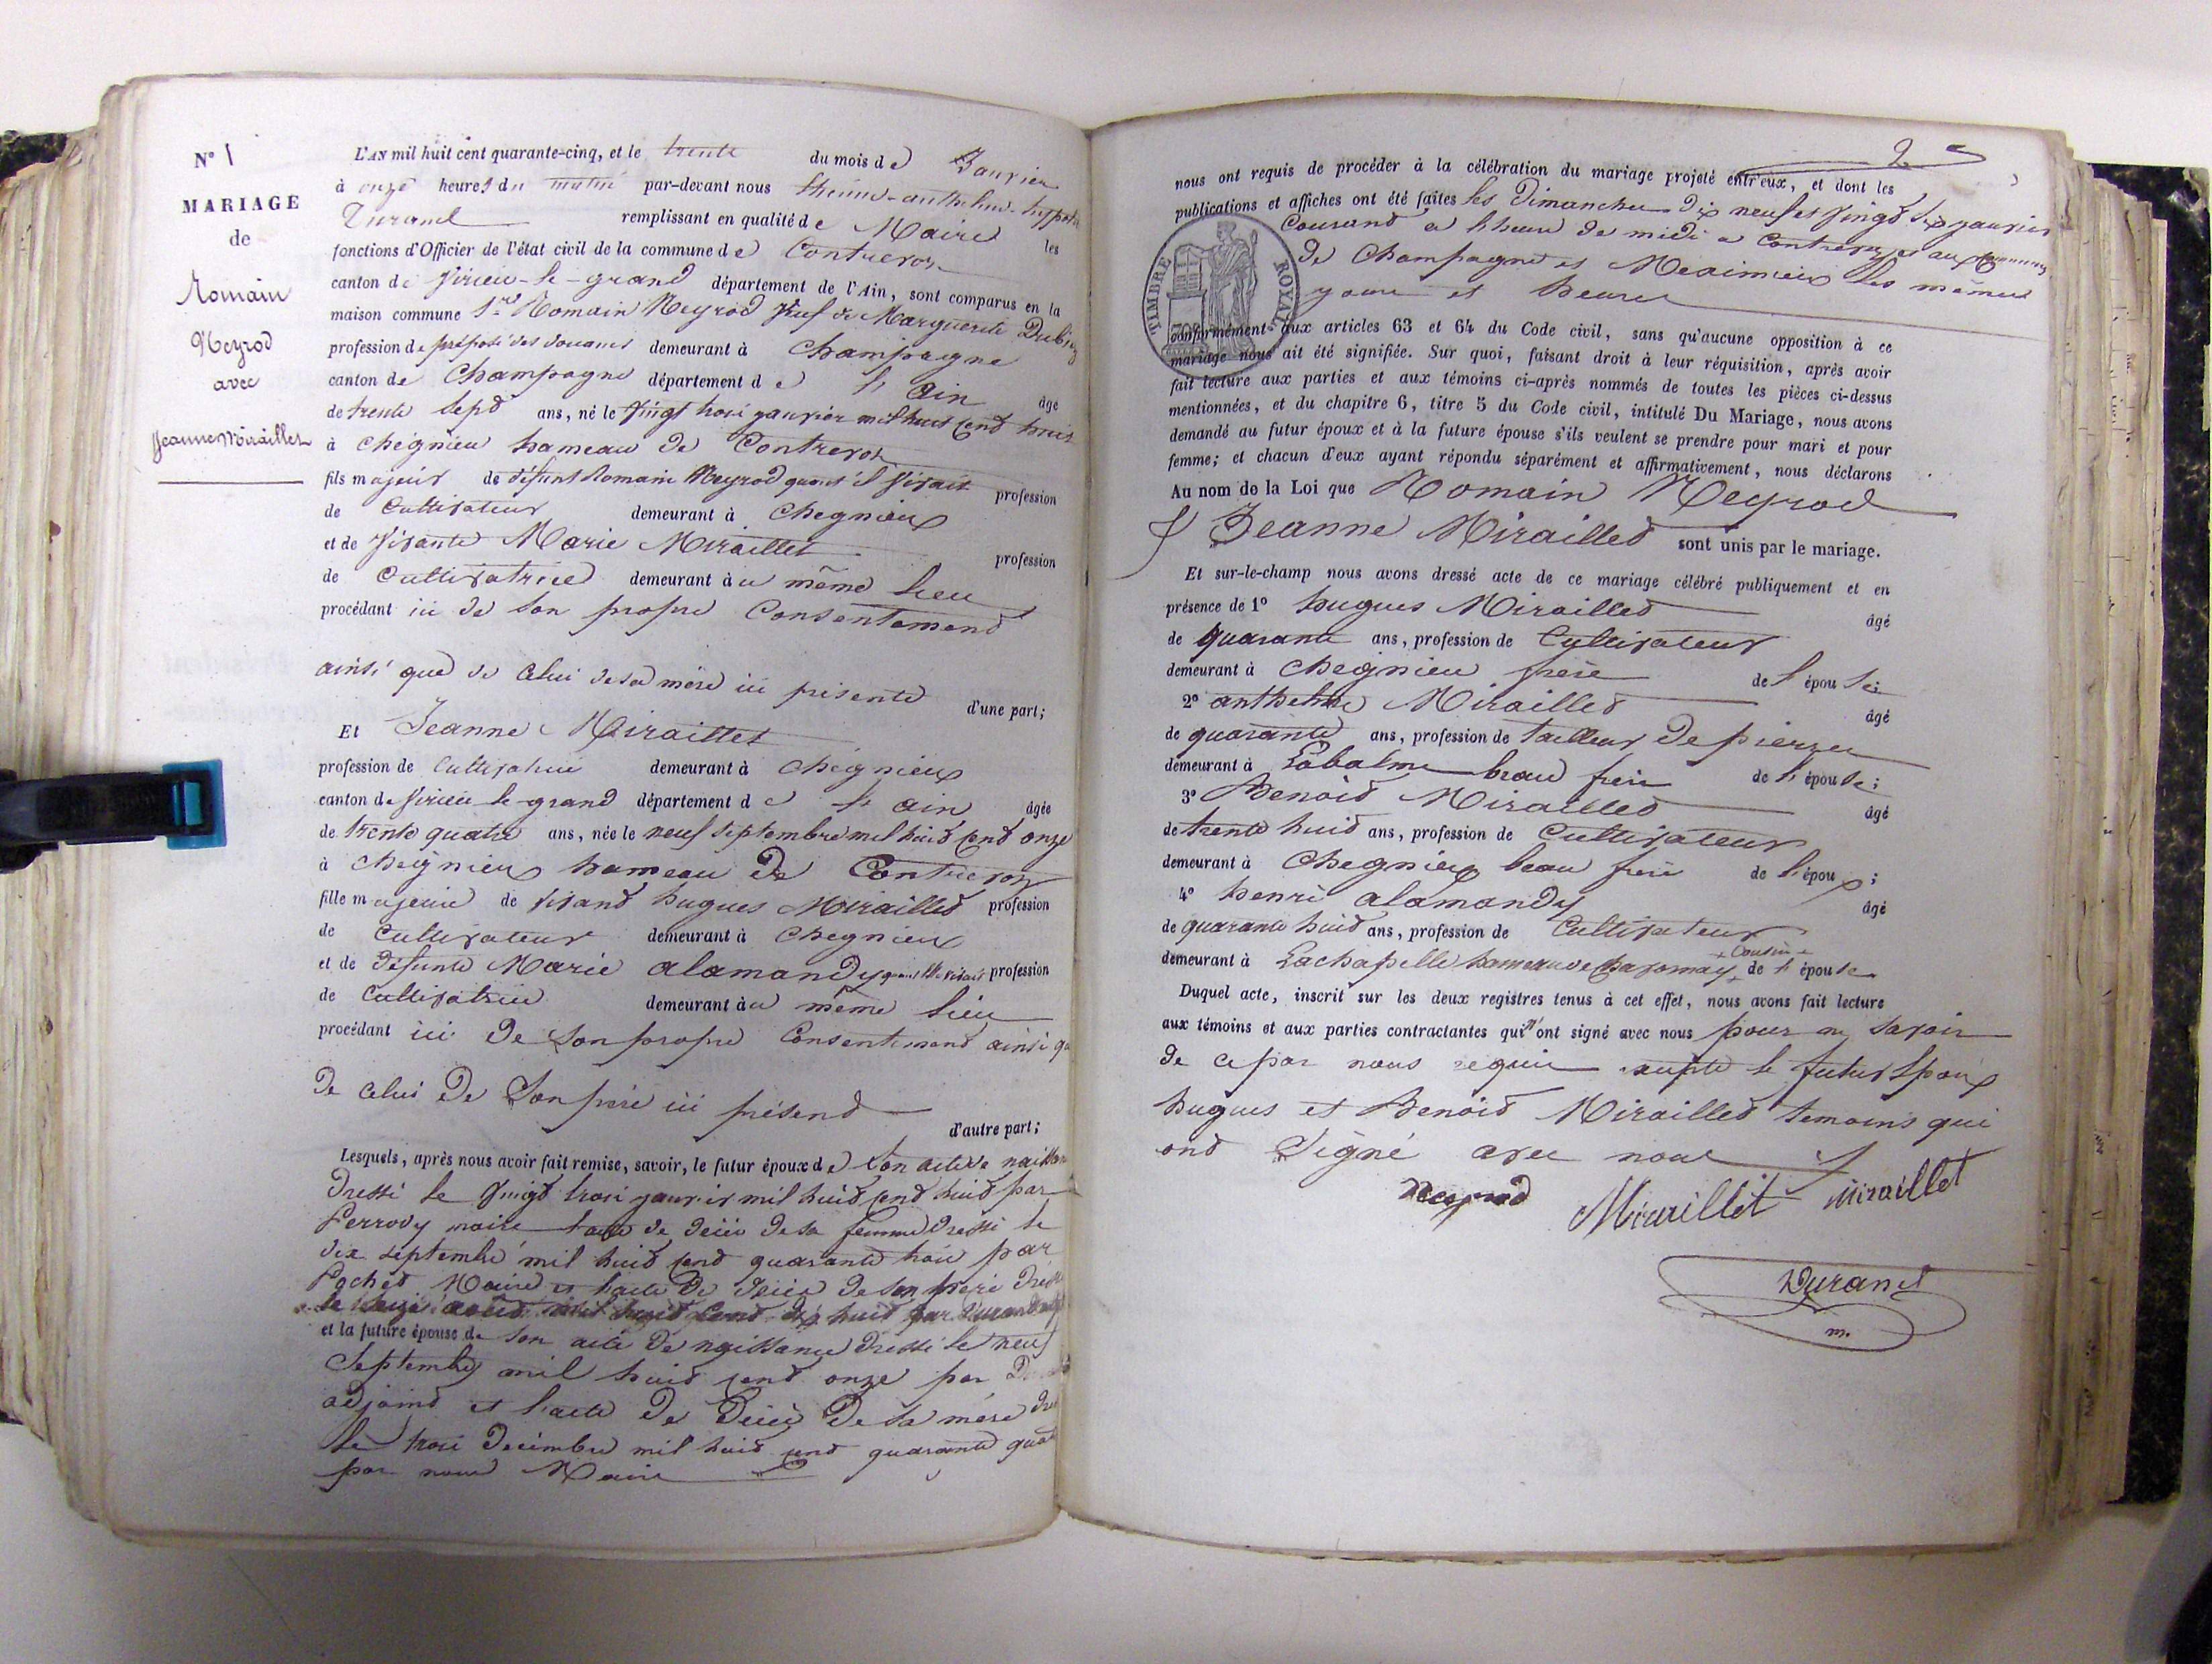 N° 1
MARIAGE
de
Romain
Neyrod
avec
Jeanne Miraillet
L'AN mil huit cent quarante-cinq, et le trente du mois de Janvier
à onze heures du matin par-devant nous anthelme
Durand remplissant en qualité de Maire les
fonctions d'Officier de l'état civil de la commune de Contrevoz
canton de Virieu-le-grand département de l'Ain, sont comparus en la
maison commune Sr Romain Neyrod Veuf de Marguerite
profession de préposé des douanes demeurant à Champagne
canton de Champagne département de l'ain âgé
de trente sept ans, né le Vingt trois janvier mil huit cent huit
à chégnieu hameau de Contrevoz
fils majeur de défunt Romain Neyrod quand il vivait profession
de Cultivateur demeurant à chegnieux
et de vivante Marie Miraillet profession
de Cultivatrice demeurant au même lieu
procédant ici de son propre Consentement
ainsi que de celui de sa mère ici présente d'une part;
Et Jeanne Miraillet
profession de Cultivatrice demeurant à chégnieux
canton de Virieu le-grand département de l'ain âgée
de trente quatre ans, née le neuf septembre mil huit cent onze
à chégnieux hameau de Contrevoz
fille majeure de vivant hugues Mirailled profession
de Cultivateur demeurant à chegnieu
et de défunte Marie alamandy quand elle vivait profession
de Cultivatrice demeurant au même lieu
procédant ici de son propre Consentemend ainsi que
de celui de Son père ici présend
d'autre part;
Lesquels, après nous avoir fait remise, savoir, le futur époux de son acte de naissance
dressé le Vingt trois janvier mil huid cend huid par
Perrody maire l'acte de décès de sa femme dressé le
dix septembre mil huid cend quarante trois par
Pochet Maire et l'acte de décès de son père
mil huid cend dix huit par Durand
et la future épouse de son acte de naissance dressé le neuf
Septembre mil huid cend onze par
adjoind et l'acte de Décès de sa mère
le trois Décembre mil huid cend quarante
par nous Maire
2
nous ont requis de procéder à la célébration du mariage projeté entr'eux, et dont les
publications et affiches ont été faites les Dimanches Dix neuf et Vingt six janvier
Courand à l'heure de midi a Contrevoz et aux communes
de Champagne et Meximieux les mêmes
jours et heures
TIMBRE ROYAL
conformément aux articles 63 et 64 du Code civil, sans qu'aucune opposition à ce
mariage nous ait été signifiée. Sur quoi, faisant droit à leur réquisition, après avoir
fait lecture aux parties et aux témoins ci-après nommés de toutes les pièces ci-dessus
mentionnées, et du chapitre 6, titre 5 du Code civil, intitulé Du Mariage, nous avons
demandé au futur époux et à la future épouse s'ils veulent se prendre pour mari et pour
femme; et chacun d'eux ayant répondu séparément et affirmativement, nous déclarons
Au nom de la Loi que Romain Neyrod
& Jeanne Mirailled sont unis par le mariage.
Et sur-le-champ nous avons dressé acte de ce mariage célébré publiquement et en
présence de 1° hugues Mirailled âgé
de quarante ans, profession de Cultivateur
demeurant à chegnieu frère de l'épouse;
2° anthelme Mirailled âgé
de quarante ans, profession de tailleur de pierres
demeurant à Labalme beau frère de l'épouse;
3° Benoid Mirailled âgé
de trente huid ans, profession de Cultivateur
demeurant à chegnieux beau frère de l'époux;
4° henri alamandy âgé
de quarante huid ans, profession de Cultivateur
demeurant à Lachapelle hameau de + Cousin + de l'épouse
Duquel acte, inscrit sur les deux registres tenus à cet effet, nous avons fait lecture
aux témoins et aux parties contractantes qui n'ont signé avec nous pour ne savoir
de ce par nous requis excepté le futur Epoux
hugues et Benoid Mirailled temoins qui
ond Signé avec nous
Neyrod Miraillet Miraillet
Durand
m.